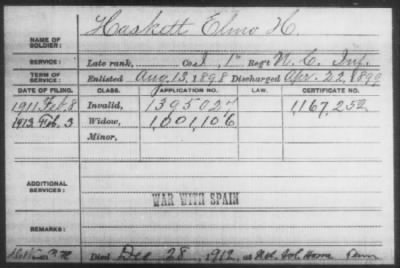 Haskett, Elmo H.
NAME OF SOLDIER:
SERVICE: Late rank, Co. I, 1st Reg't N.C. Inf.
TERM OF SERVICE: Enlisted Aug. 13, 1898 Discharged Apr. 22, 1899
DATE OF FILING. CLASS. APPLICATION NO. LAW. CERTIFICATE NO.
1911 Feb. 8 Invalid, 1395024 1,167,252
1913 Feb. 3 Widow, 1,001,106
Minor,
ADDITIONAL SERVICES:
WAR WITH SPAIN
REMARKS:
Died Dec 28, 1912, at Sol. Home Tenn